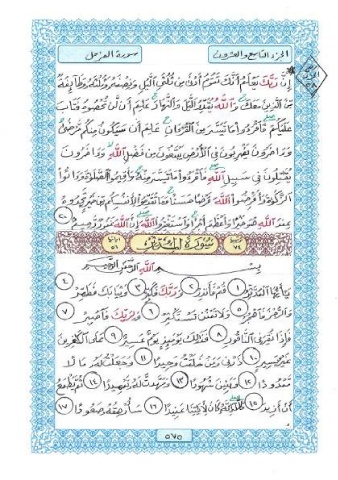 الجزء التاسع والعشرون سورة المزمل
إن ربك يعلم أنك تقوم أدنى من ثلثي الليل ونصفه وثلثه وطائفة
من الذين معك والله يقدر الليل والنهار علم أن لن تحصوه فتاب
عليكم فاقرءوا ما تيسر من القرءان علم أن سيكون منكم مرضى
وءاخرون يضربون في الأرض يبتغون من فضل الله وءاخرون
يقتلون في سبيل الله فاقرءوا ما تيسر منه وأقيموا الصلوة وءاتوا
الزكوة وأقرضوا الله قرضا حسنا وما تقدموا لأنفسكم من خير تجدوه
عند الله هو خيرا وأعظم أجرا واستغفروا الله إن الله غفور رحيم ٢٠
ترتيبها ٧٤ سورة المدثر آياتها ٥٦
بسم الله الرحمن الرحيم
يأيها المدثر ١ قم فأنذر ٢ وربك فكبر ٣ وثيابك فطهر ٤
والرجز فاهجر ٥ ولا تمنن تستكثر ٦ ولربك فاصبر ٧
فإذا نقر في الناقور ٨ فذلك يومئذ يوم عسير ٩ على الكفرين
غير يسير ١٠ ذرني ومن خلقت وحيدا ١١ وجعلت له مالا
ممدودا ١٢ وبنين شهودا ١٣ ومهدت له تمهيدا ١٤ ثم يطمع
أن أزيد ١٥ كلا إنه كان لءايتنا عنيدا ١٦ سأرهقه صعودا ١٧
٥٧٥